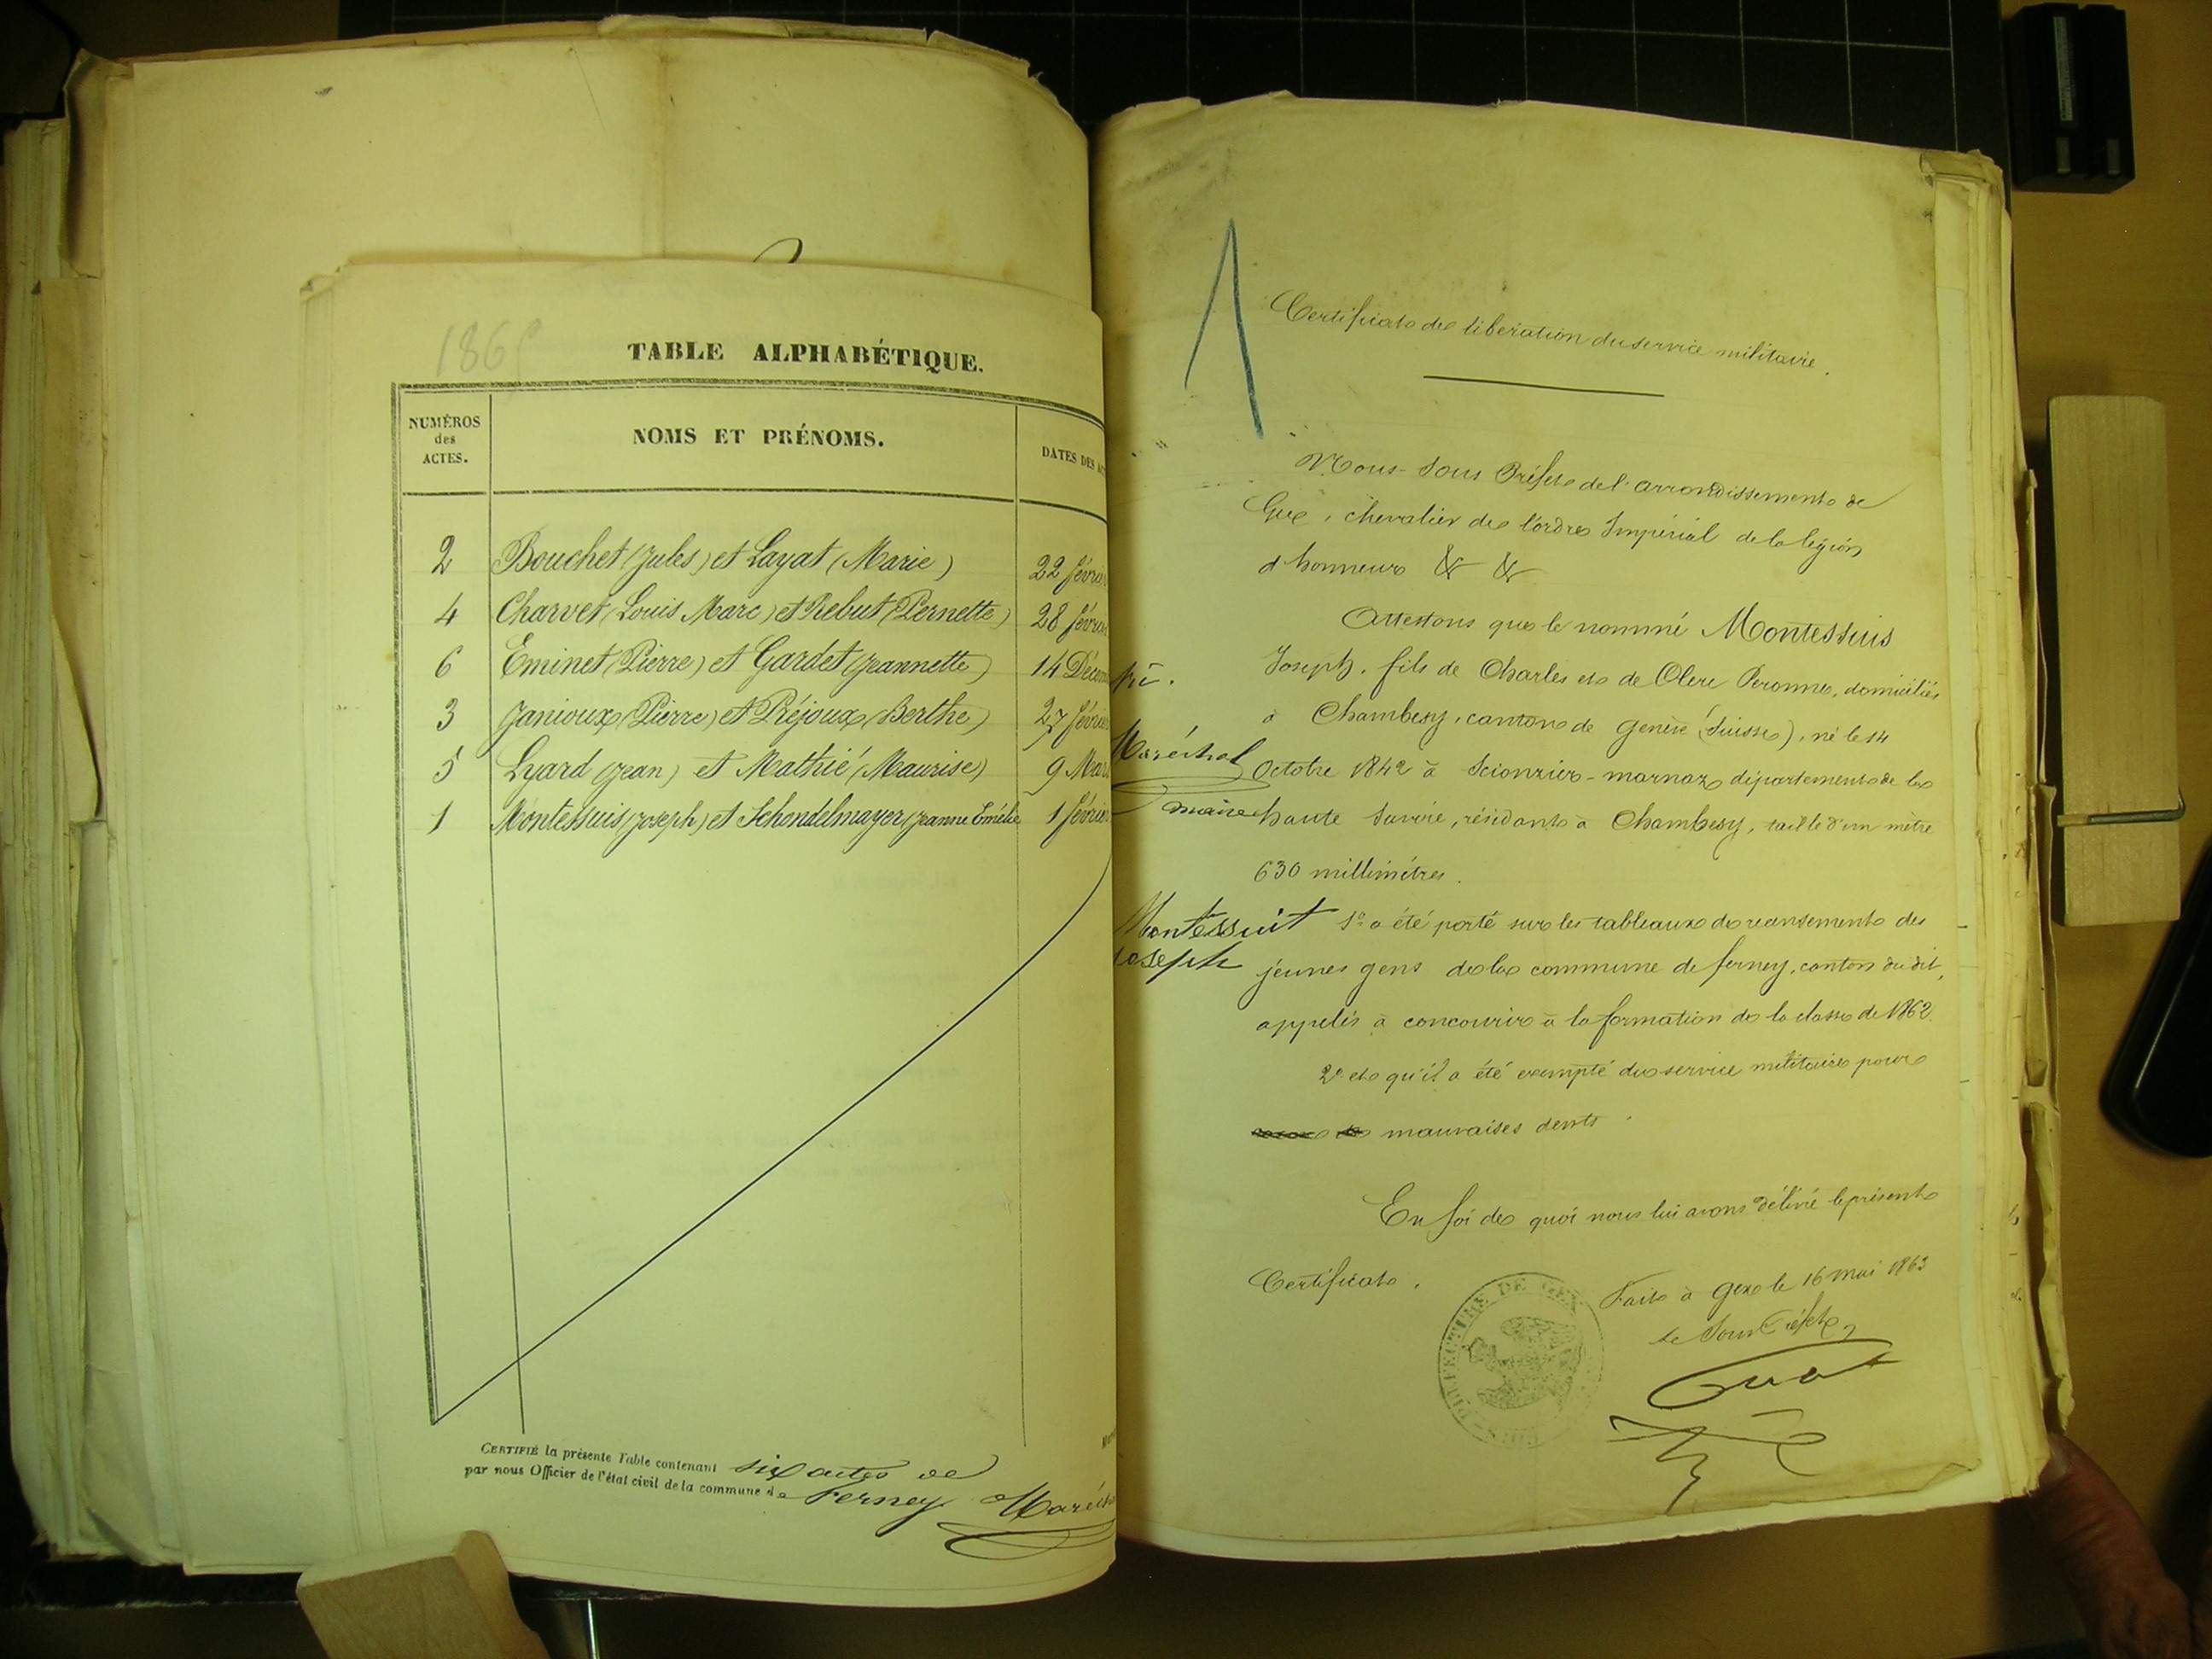 TABLE ALPHABÉTIQUE.
NUMÉROS
des
ACTES.
NOMS ET PRÉNOMS.
DATES DES
2 Bouchet (Jules) et Layat (Marie) 22 févri
4 Charvet (Louis Marc) et Rebut (Pernette) 28 févri
6 Eminet (Pierre) et Gardet (Jeannette) 14 Décem
3 Janioux (Pierre) et Préjoux (Berthe) 27 févri
5 Lyard (Jean) et Mathié (Maurise) 9 Mar
1 Montessuis (Joseph) et Schondelmayer (Jeanne Emélie 1 février
CERTIFIÉ la présente Table contenant six actes de
par nous Officier de l'état civil de la commune de Ferney Maréch
1
Certificat de libération du service militaire.
Nous Sous Préfet de l'arrondissement de
Gex, chevalier de l'ordre Impérial de la légion
d'honneur & &
Attestons que le nommé Montessuis
Joseph, fils de Charles et de Peronne, domiciliés
à Chambesy, canton de Genève (Suisse), né le 14
Octobre 1842 à Scionzier-marnaz département de la
haute Savoie, résidant à Chambesy, taille d'un mètre
630 millimètres.
1º a été porté sur les tableaux de recensement des
jeunes gens de la commune de ferney, canton du dit,
appelés à concourir à la formation de la classe de 1862.
2º et qu'il a été exempté du service militaire pour
mauvaises dents.
En foi de quoi nous lui avons délivré le présent
Certificat.
Fait à Gex le 16 mai 1863
Le Sous Préfet,
Maréchal
maire
Montessuit
Joseph